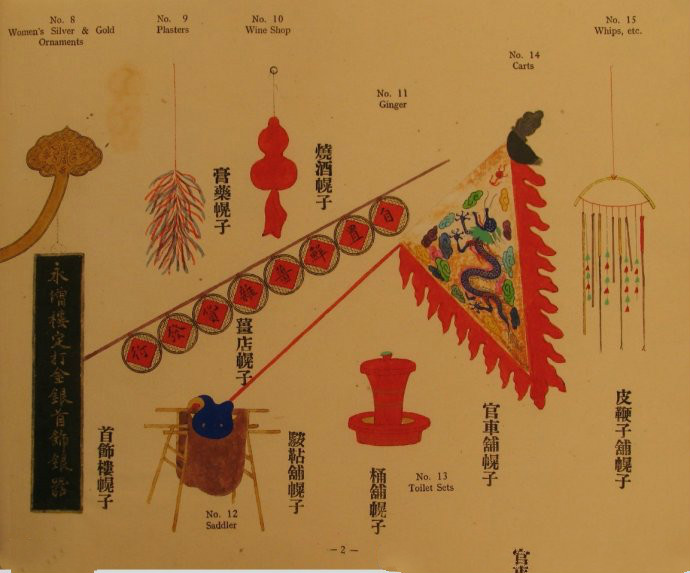 No. 8
Women's Silver & Gold
Ornaments
No. 9
Plasters
No. 10
Wine Shop
No. 11
Ginger
No. 14
Carts
No. 15
Whips, etc.
膏藥幌子
燒酒幌子
薑店幌子
永增樓定打金銀首飾銀
首飾樓幌子
鞍韂舖幌子
No. 12
Saddler
桶舖幌子
No. 13
Toilet Sets
官車舖幌子
皮鞭子舖幌子
— 2 —
官車